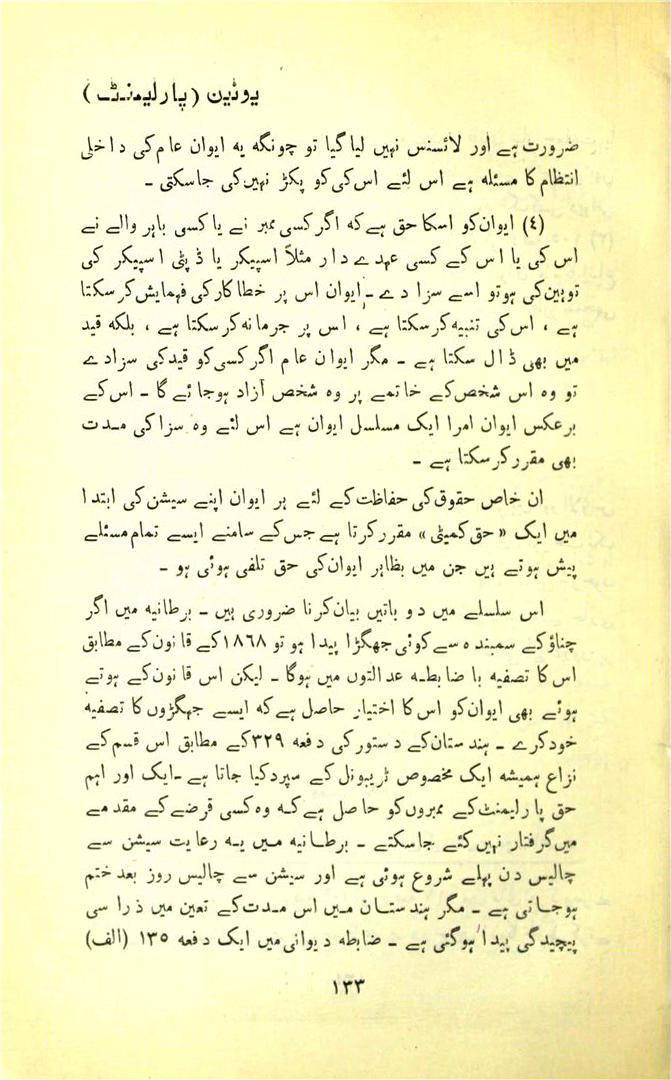 یونین (پارلیمنٹ)
ضرورت ہے اور لائسنس نہیں لیا گیا تو چونکہ یہ ایوان عام کی داخلی
انتظام کا مسئلہ ہے اس لئے اس کی کو پکڑ نہیں کی جاسکتی ۔
(٤) ایوان کو اسکا حق ہے کہ اگر کسی ممبر نے یا کسی باہر والے نے
اس کی یا اس کے کسی عہدے دار مثلاً اسپیکر یا ڈپٹی اسپیکر کی
توہین کی ہو تو اسے سزا دے ۔ ایوان اس پر خطا کار کی فہمایش کرسکتا
ہے ، اس کی تنبیہ کرسکتا ہے ، اس پر جرمانہ کرسکتا ہے ، بلکہ قید
میں بھی ڈال سکتا ہے ۔ مگر ایوان عام اگر کسی کو قید کی سزا دے
تو وہ اس شخص کے خاتمے پر وہ شخص آزاد ہوجائے گا ۔ اس کے
برعکس ایوان امرا ایک مسلسل ایوان ہے اس لئے وہ سزا کی مدت
بھی مقرر کرسکتا ہے ۔
ان خاص حقوق کی حفاظت کے لئے ہر ایوان اپنے سیشن کی ابتدا
میں ایک «حق کمیٹی» مقرر کرتا ہے جس کے سامنے ایسے تمام مسئلے
پیش ہوتے ہیں جن میں بظاہر ایوان کی حق تلفی ہوئی ہو ۔
اس سلسلے میں دو باتیں بیان کرنا ضروری ہیں ۔ برطانیہ میں اگر
چناؤ کے سمبندہ سے کوئی جھگڑا پیدا ہو تو ١٨٦٨ کے قانون کے مطابق
اس کا تصفیہ با ضابطہ عدالتوں میں ہوگا ۔ لیکن اس قانون کے ہوتے
ہوئے بھی ایوان کو اس کا اختیار حاصل ہے کہ ایسے جھگڑوں کا تصفیہ
خود کرے ۔ ہندستان کے دستور کی دفعہ ٣٢٩ کے مطابق اس قسم کے
نزاع ہمیشہ ایک مخصوص ٹریبونل کے سپرد کیا جاتا ہے ۔ ایک اور اہم
حق پارلیمنٹ کے ممبروں کو حاصل ہے کہ وہ کسی قرضے کے مقدمے
میں گرفتار نہیں کئے جاسکتے ۔ برطانیہ میں یہ رعایت سیشن سے
چالیس دن پہلے شروع ہوئی ہے اور سیشن سے چالیس روز بعد ختم
ہوجاتی ہے ۔ مگر ہندستان میں اس مدت کے تعین میں ذرا سی
پیچیدگی پیدا ہوگئی ہے ۔ ضابطہ دیوانی میں ایک دفعہ ١٣٥ (الف)
١٣٣